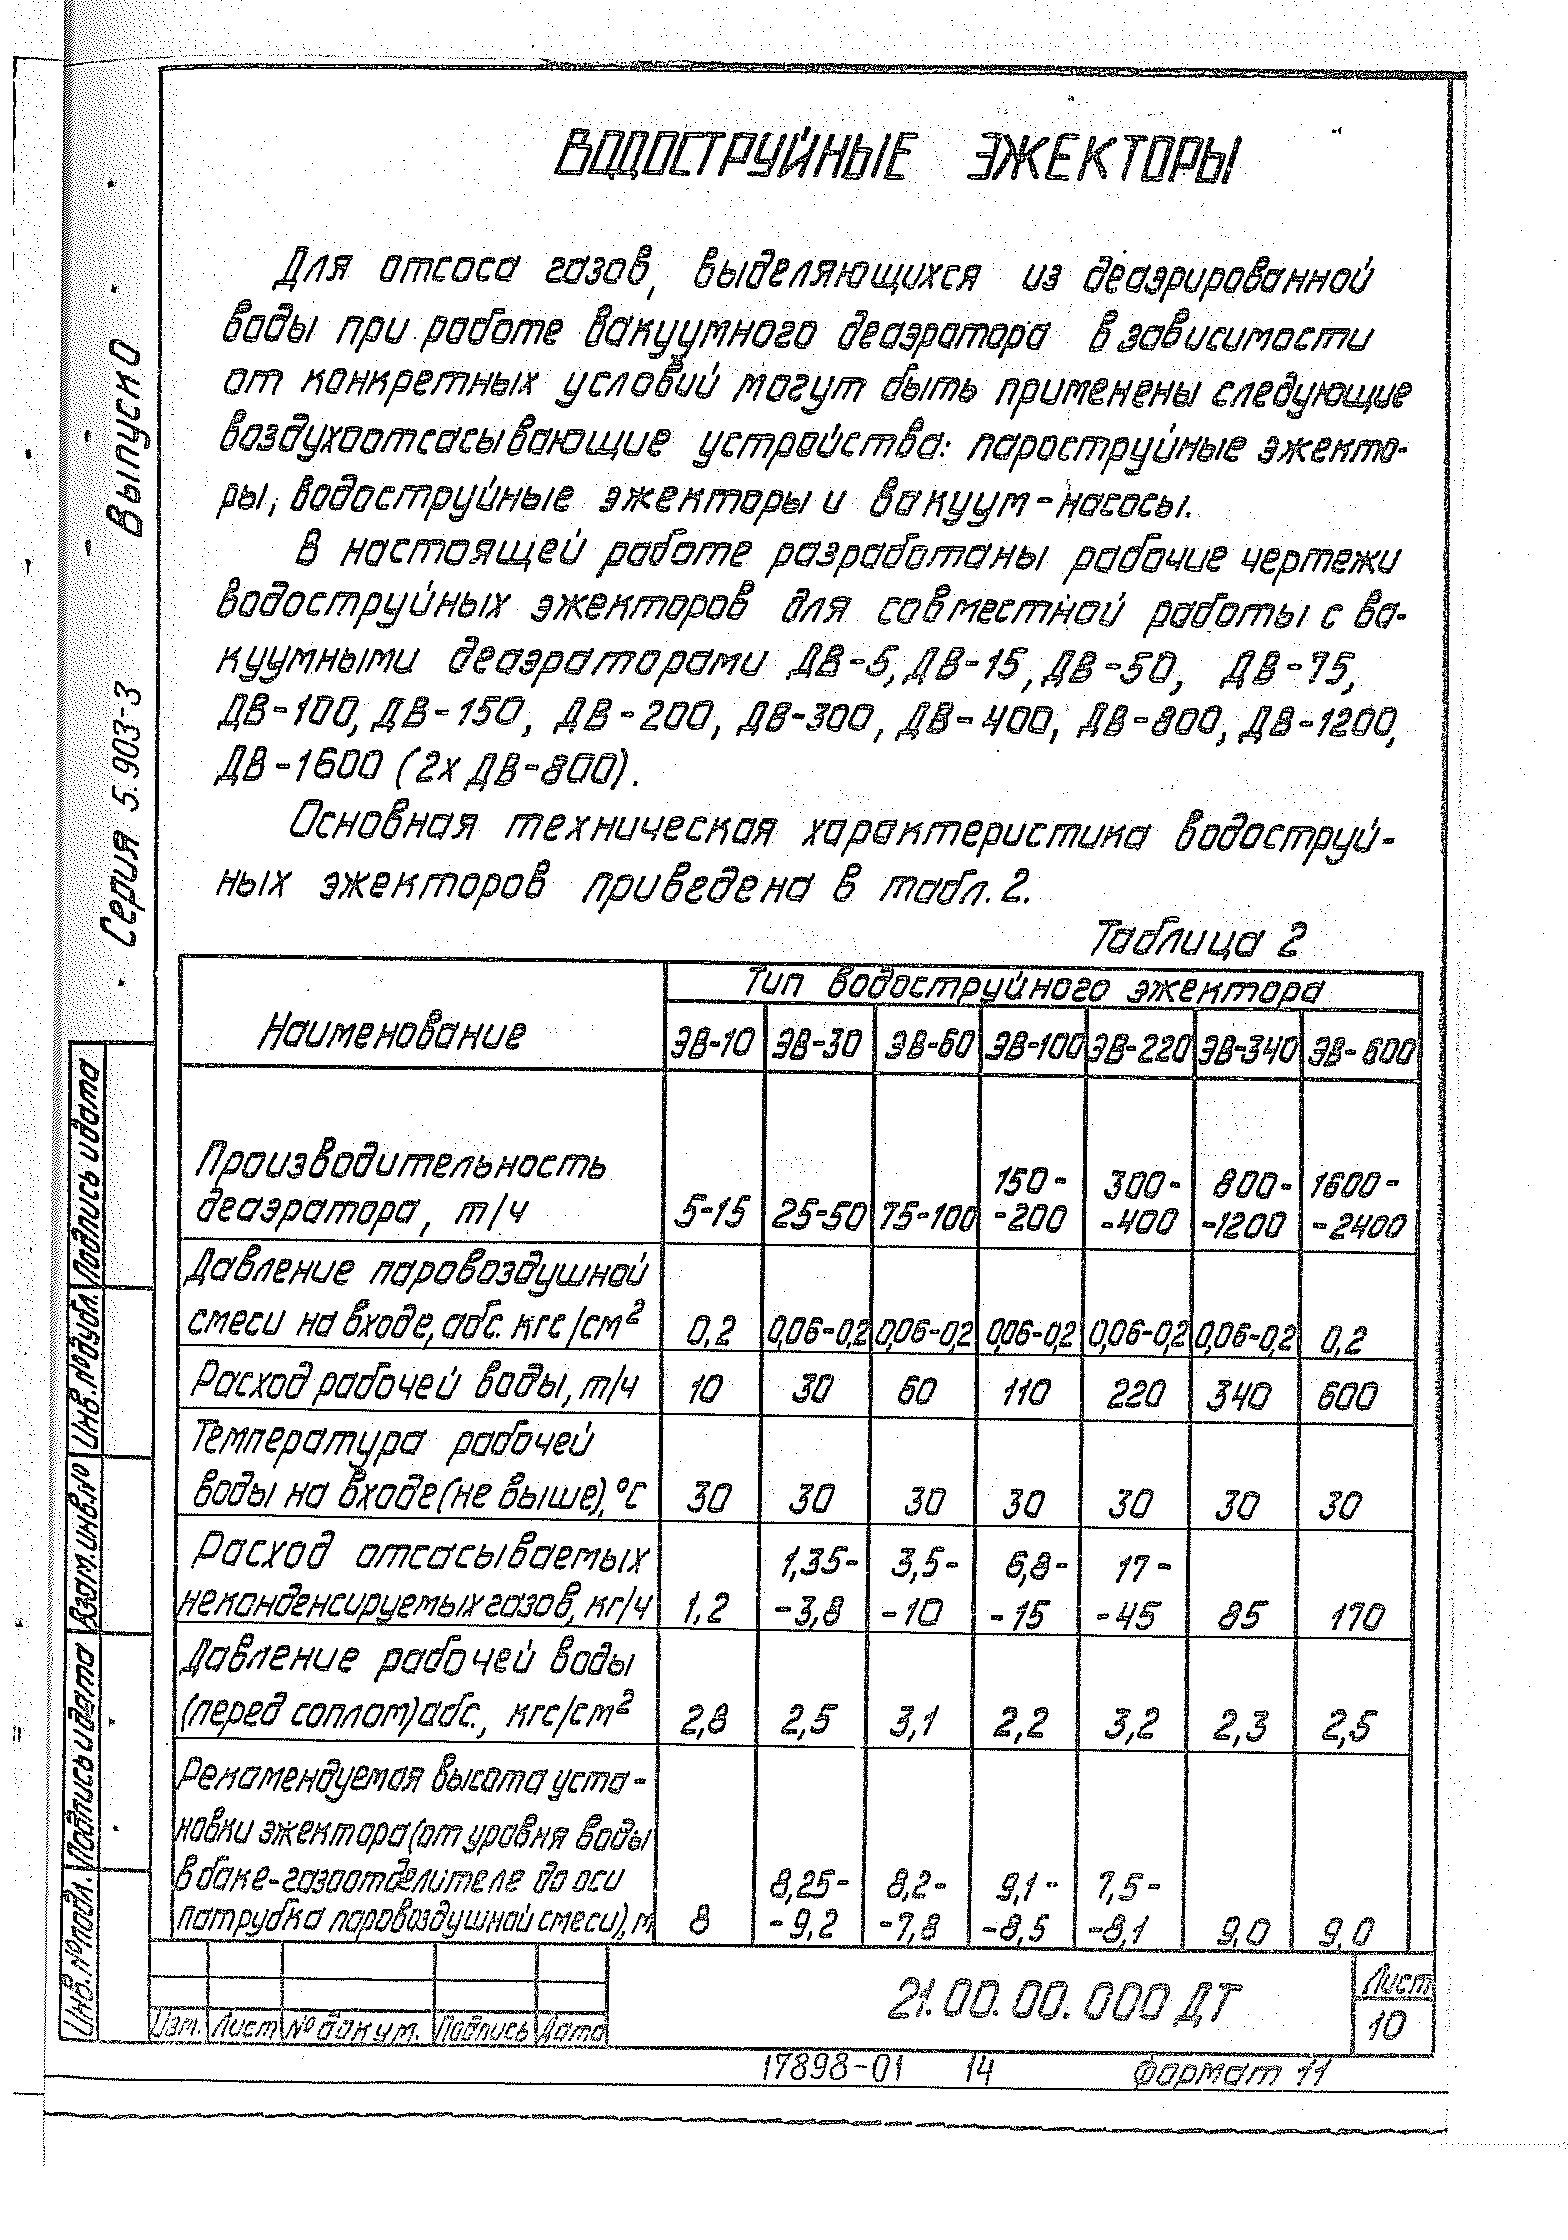 Серия 5.903-3 Выпуск 0
ВОДОСТРУЙНЫЕ ЭЖЕКТОРЫ
Для отсоса газов, выделяющихся из деаэрированной
воды при работе вакуумного деаэратора в зависимости
от конкретных условий могут быть применены следующие
воздухоотсасывающие устройства: пароструйные эжекто-
ры, водоструйные эжекторы и вакуум-насосы.
В настоящей работе разработаны рабочие чертежи
водоструйных эжекторов для совместной работы с ва-
куумными деаэраторами ДВ-5, ДВ-15, ДВ-50, ДВ-75,
ДВ-100, ДВ-150, ДВ-200, ДВ-300, ДВ-400, ДВ-800, ДВ-1200,
ДВ-1600 (2х ДВ-800).
Основная техническая характеристика водоструй-
ных эжекторов приведена в табл. 2.
Таблица 2
Тип водоструйного эжектора
Наименование ЭВ-10 ЭВ-30 ЭВ-60 ЭВ-100 ЭВ-220 ЭВ-340 ЭВ-600
Производительность 150- 300- 800- 1600-
деаэратора, т/ч 5-15 25-50 75-100 -200 -400 -1200 -2400
Давление паровоздушной
смеси на входе, абс. кгс/см² 0,2 0,06-0,2 0,06-0,2 0,06-0,2 0,06-0,2 0,06-0,2 0,2
Расход рабочей воды, т/ч 10 30 60 110 220 340 600
Температура рабочей
воды на входе (не выше), °С 30 30 30 30 30 30 30
Расход отсасываемых 1,35- 3,5- 6,8- 17-
неконденсируемых газов, кг/ч 1,2 -3,8 -10 -15 -45 85 170
Давление рабочей воды
(перед соплом) абс., кгс/см² 2,8 2,5 3,1 2,2 3,2 2,3 2,5
Рекомендуемая высота уста-
новки эжектора (от уровня воды
в баке-газоотделителе до оси 8,25- 8,2- 9,1- 7,5-
патрубка паровоздушной смеси), м 8 -9,2 -7,8 -8,5 -8,1 9,0 9,0
Подпись и дата
Инв. № дубл.
Взам. инв. №
Подпись и дата
Инв. № подл.
Изм. Лист № докум. Подпись Дата
21.00.00.000 ДТ
Лист
10
17898-01 14 Формат 11